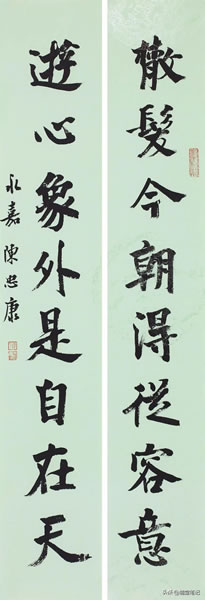 髮今朝得從容意
遊心象外是自在天
永嘉陳忠康